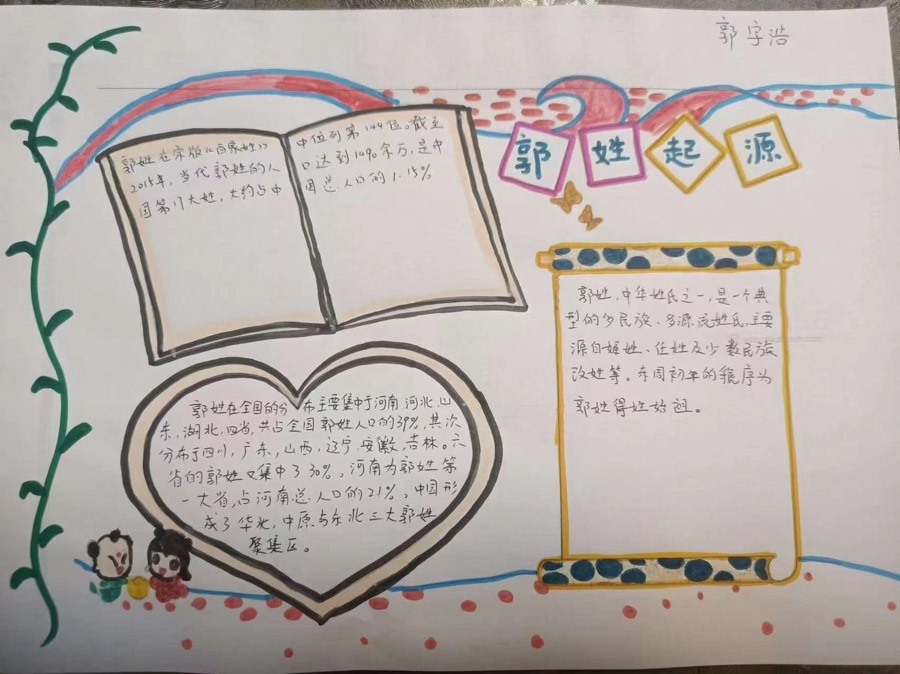 郭宇浩
郭姓起源
郭姓在宋版《百家姓》
2015年，当代郭姓的人
国第17大姓，大约占中
中位列第144位。截至
口达到1490余万，是中
国总人口的1.15%
郭姓，中华姓氏之一，是一个典
型的多民族、多源流姓氏，主要
源自姬姓、任姓及少数民族
改姓等。东周初年的虢序为
郭姓得姓始祖。
郭姓在全国的分布主要集中于河南，河北，山
东，湖北，四省，共占全国郭姓人口的39%，其次
分布于四川，广东，山西，辽宁，安徽，吉林。六
省的郭姓又集中了30%，河南为郭姓第
一大省，占河南总人口的21%，中国形
成了华北，中原与东北三大郭姓
聚集区。